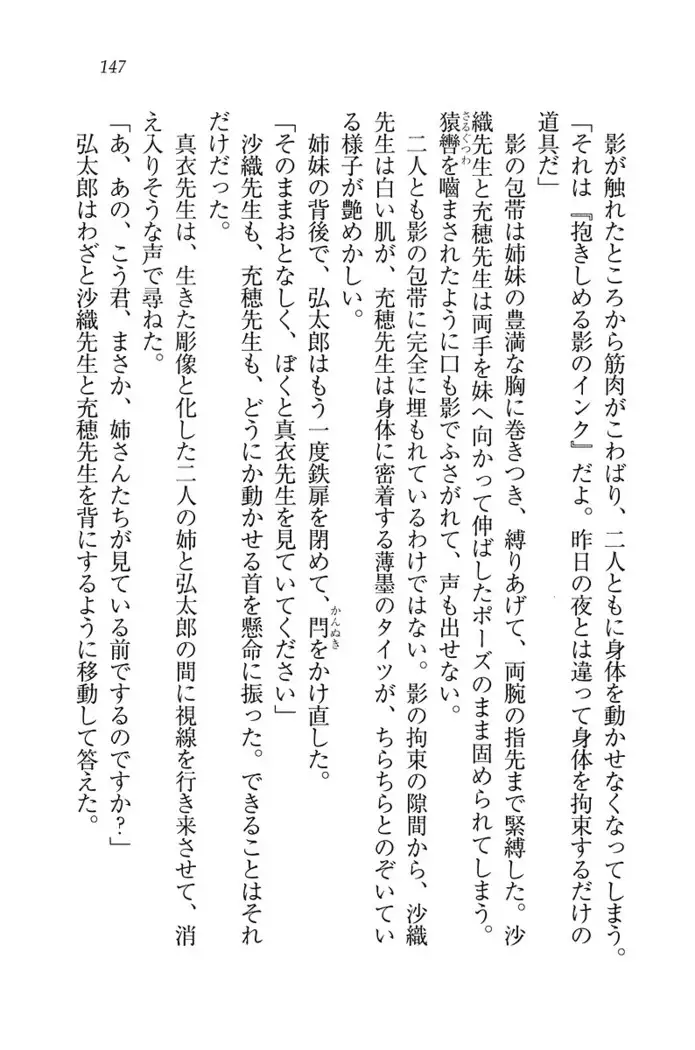 147
影が触れたところから筋肉がこわばり、二人ともに身体を動かせなくなってしまう。
「それは『抱きしめる影のインク』だよ。昨日の夜とは違って身体を拘束するだけの
道具だ」
影の包帯は姉妹の豊満な胸に巻きつき、縛りあげて、両腕の指先まで緊縛した。沙
織先生と充穂先生は両手を妹へ向かって伸ばしたポーズのまま固められてしまう。
猿轡を嚙まされたように口も影でふさがれて、声も出せない。
さるぐつわ
二人とも影の包帯に完全に埋もれているわけではない。影の拘束の隙間から、沙織
先生は白い肌が、充穂先生は身体に密着する薄墨のタイツが、ちらちらとのぞいてい
る様子が艶めかしい。
姉妹の背後で、弘太郎はもう一度鉄扉を閉めて、閂をかけ直した。
かんぬき
「そのままおとなしく、ぼくと真衣先生を見ていてください」
沙織先生も、充穂先生も、どうにか動かせる首を懸命に振った。できることはそれ
だけだった。
真衣先生は、生きた彫像と化した二人の姉と弘太郎の間に視線を行き来させて、消
え入りそうな声で尋ねた。
「あ、あの、こう君、まさか、姉さんたちが見ている前でするのですか?」
弘太郎はわざと沙織先生と充穂先生を背にするように移動して答えた。